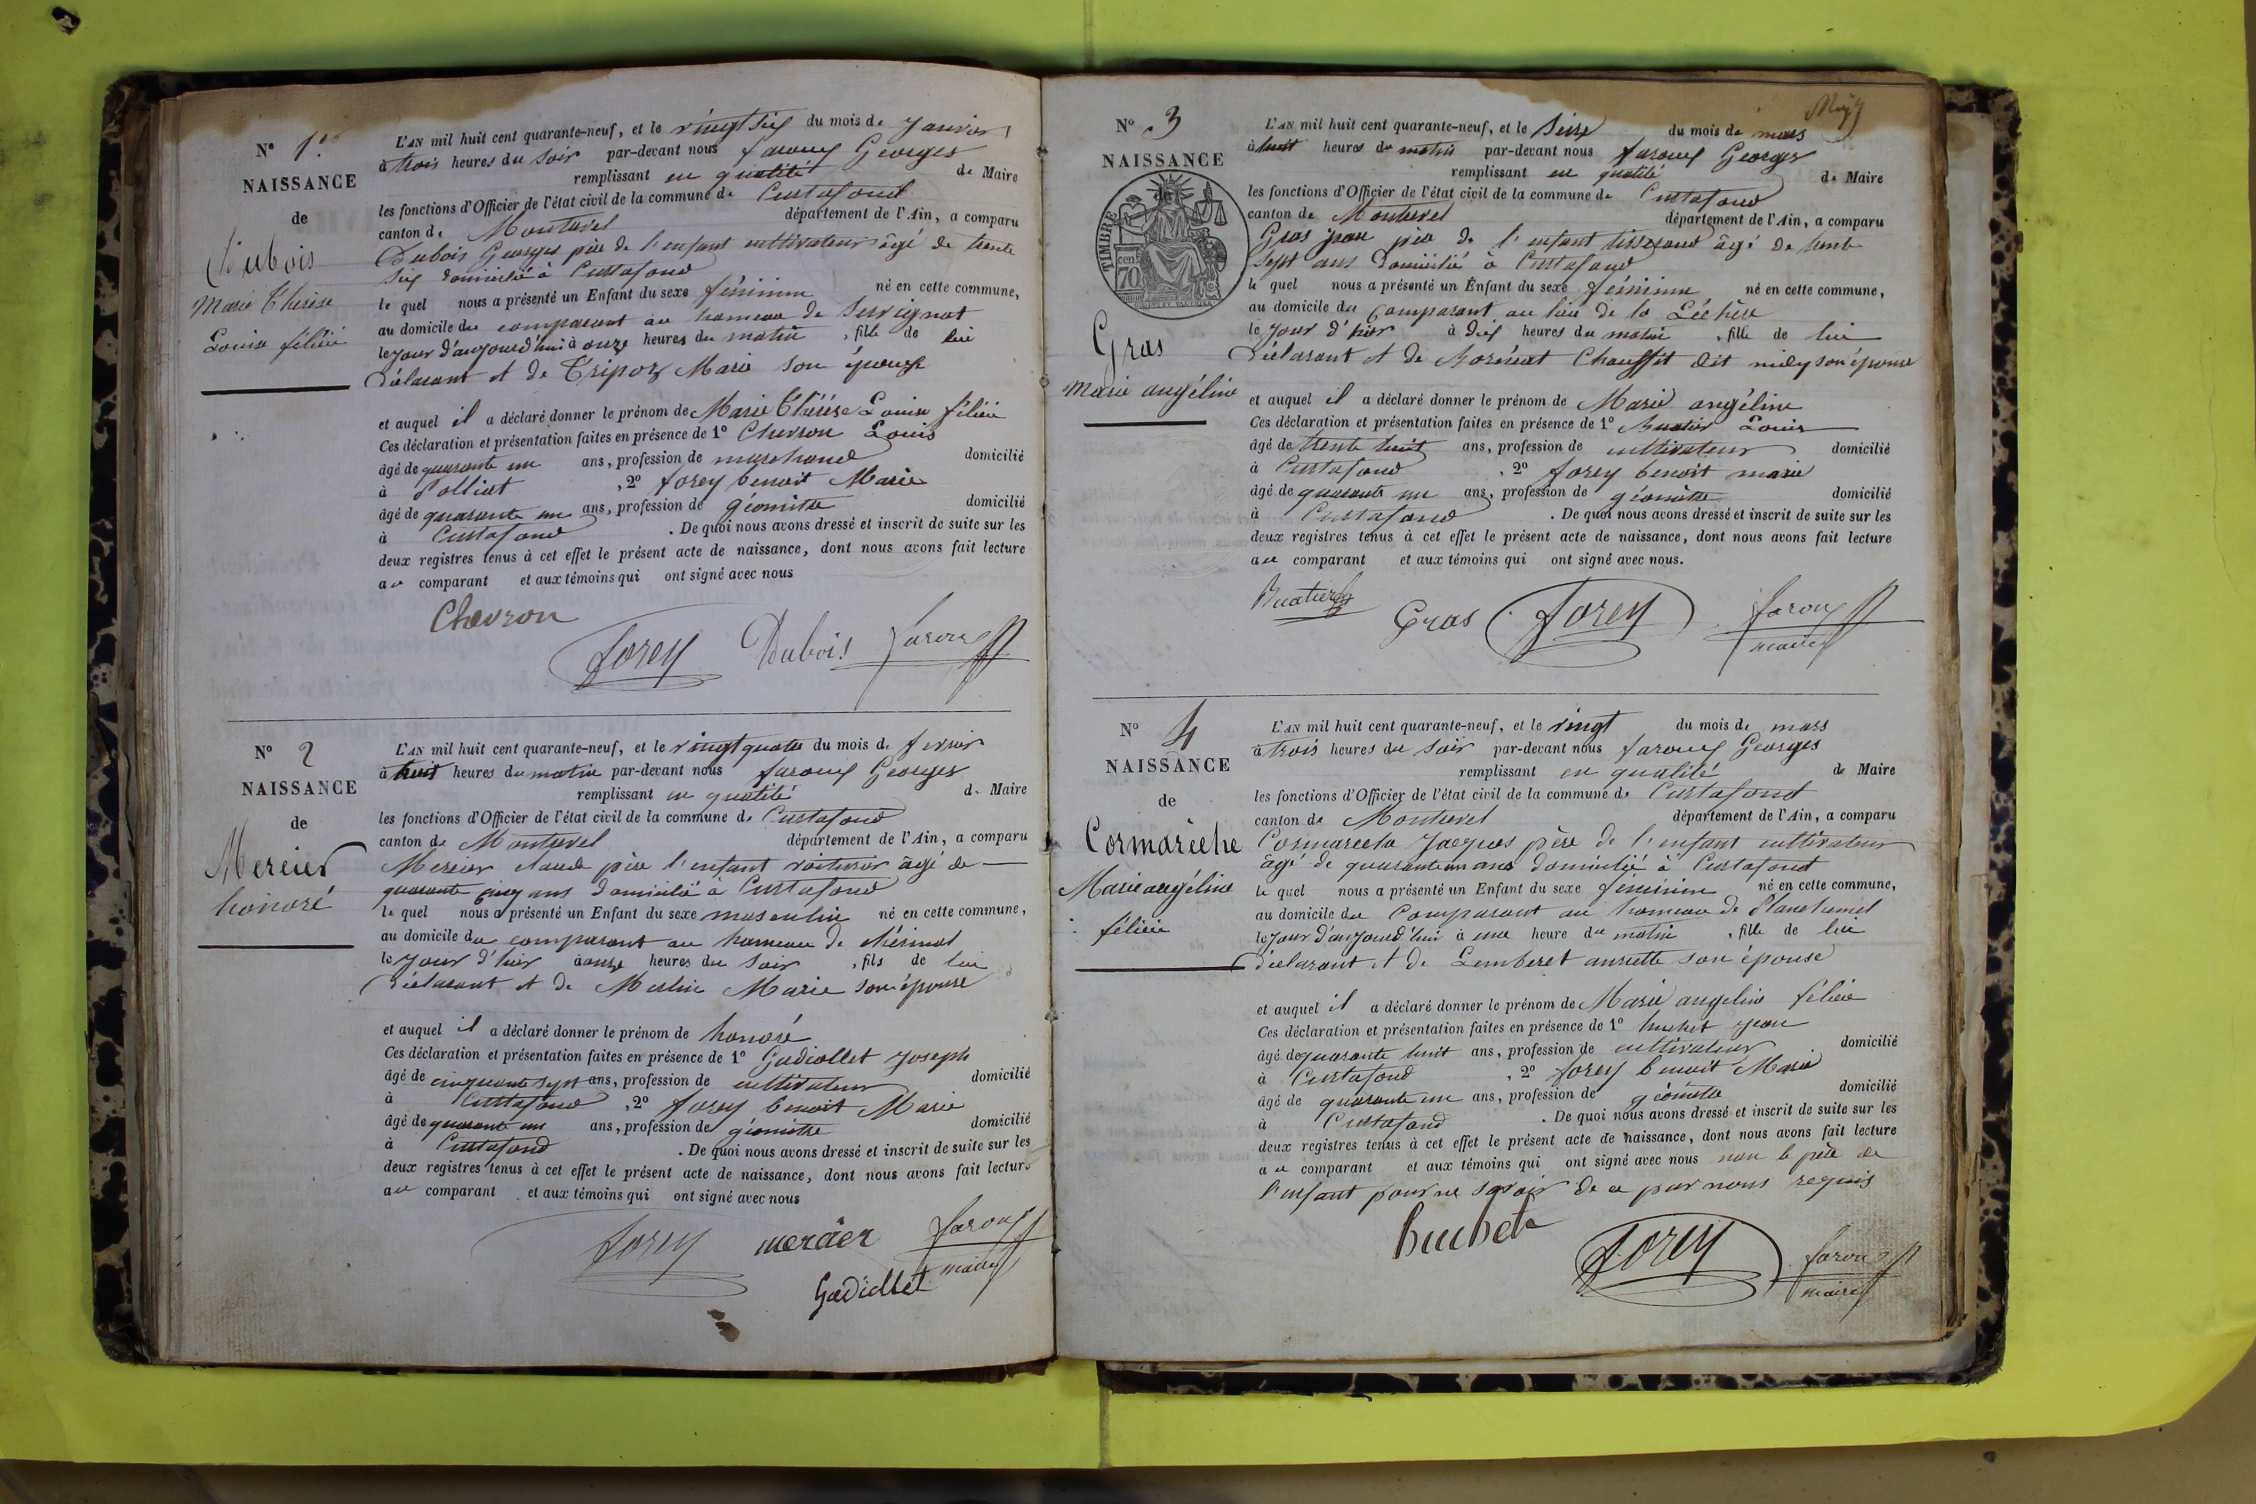 N° 1er
NAISSANCE
de
Dubois
Marie Thérèse
Louise félicie
L'AN mil huit cent quarante-neuf, et le vingt six du mois de janvier
à trois heures du soir par-devant nous faroux Georges
remplissant en qualité de Maire
les fonctions d'Officier de l'état civil de la commune de Curtafond
canton de Montrevel département de l'Ain, a comparu
Dubois Georges père de l'enfant cultivateur âgé de trente
six domicilié à Curtafond
le quel nous a présenté un Enfant du sexe féminin né en cette commune,
au domicile du comparant au hameau de Servignat
le jour d'aujourd'hui à onze heures du matin , fille de lui
Déclarant et de Tripoz Marie son épouse
et auquel il a déclaré donner le prénom de Marie Thérèse Louise félicie
Ces déclaration et présentation faites en présence de 1° Chevron Louis
âgé de quarante un ans, profession de marchand domicilié
à Polliat , 2° forey benoit Marie
âgé de quarante un ans, profession de géomètre domicilié
à Curtafond . De quoi nous avons dressé et inscrit de suite sur les
deux registres tenus à cet effet le présent acte de naissance, dont nous avons fait lecture
au comparant et aux témoins qui ont signé avec nous
Chevron
forey Dubois faroux
N° 2
NAISSANCE
de
Mercier
honoré
L'AN mil huit cent quarante-neuf, et le vingt quatre du mois de fevrier
à huit heures du matin par-devant nous faroux Georges
remplissant en qualité de Maire
les fonctions d'Officier de l'état civil de la commune de Curtafond
canton de Montrevel département de l'Ain, a comparu
Mercier claude père l'enfant voiturier âgé de
quarante cinq ans domicilié à Curtafond
le quel nous a présenté un Enfant du sexe masculin né en cette commune,
au domicile du comparant au hameau de
le jour d'hier à onze heures du soir , fils de lui
Déclarant et de Merlin Marie son épouse
et auquel il a déclaré donner le prénom de honoré
Ces déclaration et présentation faites en présence de 1° Gadiollet Joseph
âgé de cinquante sept ans, profession de cultivateur domicilié
à Curtafond , 2° forey benoit Marie
âgé de quarante un ans, profession de géomètre domicilié
à Curtafond . De quoi nous avons dressé et inscrit de suite sur les
deux registres tenus à cet effet le présent acte de naissance, dont nous avons fait lecture
au comparant et aux témoins qui ont signé avec nous
forey mercier faroux
maire
Gadiollet
N° 3
NAISSANCE
de
TIMBRE
70 cent
Gras
Marie angéline
L'AN mil huit cent quarante-neuf, et le seize du mois de mars
à huit heures du matin par-devant nous faroux Georges
remplissant en qualité de Maire
les fonctions d'Officier de l'état civil de la commune de Curtafond
canton de Montrevel département de l'Ain, a comparu
Gras jean père de l'enfant tisserand âgé de trente
sept ans domicilié à Curtafond
le quel nous a présenté un Enfant du sexe féminin né en cette commune,
au domicile du comparant au lieu de la Léchère
le jour d'hier à dix heures du matin , fille de lui
Déclarant et de Chauffit dit son épouse
et auquel il a déclaré donner le prénom de Marie angéline
Ces déclaration et présentation faites en présence de 1° Buatier Louis
âgé de trente huit ans, profession de cultivateur domicilié
à Curtafond , 2° forey benoit marie
âgé de quarante un ans, profession de géomètre domicilié
à Curtafond . De quoi nous avons dressé et inscrit de suite sur les
deux registres tenus à cet effet le présent acte de naissance, dont nous avons fait lecture
au comparant et aux témoins qui ont signé avec nous.
Buatier Gras forey faroux
maire
N° 4
NAISSANCE
de
Cormarèche
Marie angéline
félicie
L'AN mil huit cent quarante-neuf, et le vingt du mois de mars
à trois heures du soir par-devant nous faroux Georges
remplissant en qualité de Maire
les fonctions d'Officier de l'état civil de la commune de Curtafond
canton de Montrevel département de l'Ain, a comparu
Cormareche Jacques père de l'enfant cultivateur
âgé de quarante un ans domicilié à Curtafond
le quel nous a présenté un Enfant du sexe féminin né en cette commune,
au domicile du comparant au hameau de
le jour d'aujourd'hui à une heure du matin , fille de lui
Déclarant et de Lemberet anriette son épouse
et auquel il a déclaré donner le prénom de Marie angeline félicie
Ces déclaration et présentation faites en présence de 1° buchet jean
âgé de quarante huit ans, profession de cultivateur domicilié
à Curtafond , 2° forey benoit Marie
âgé de quarante un ans, profession de géomètre domicilié
à Curtafond . De quoi nous avons dressé et inscrit de suite sur les
deux registres tenus à cet effet le présent acte de naissance, dont nous avons fait lecture
au comparant et aux témoins qui ont signé avec nous non le père de
l'enfant pour ne savoir de ce par nous requis
buchet
forey faroux
maire